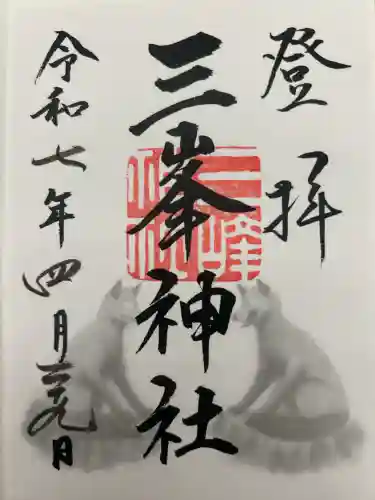 登拝
三峯神社
令和七年四月二十九日